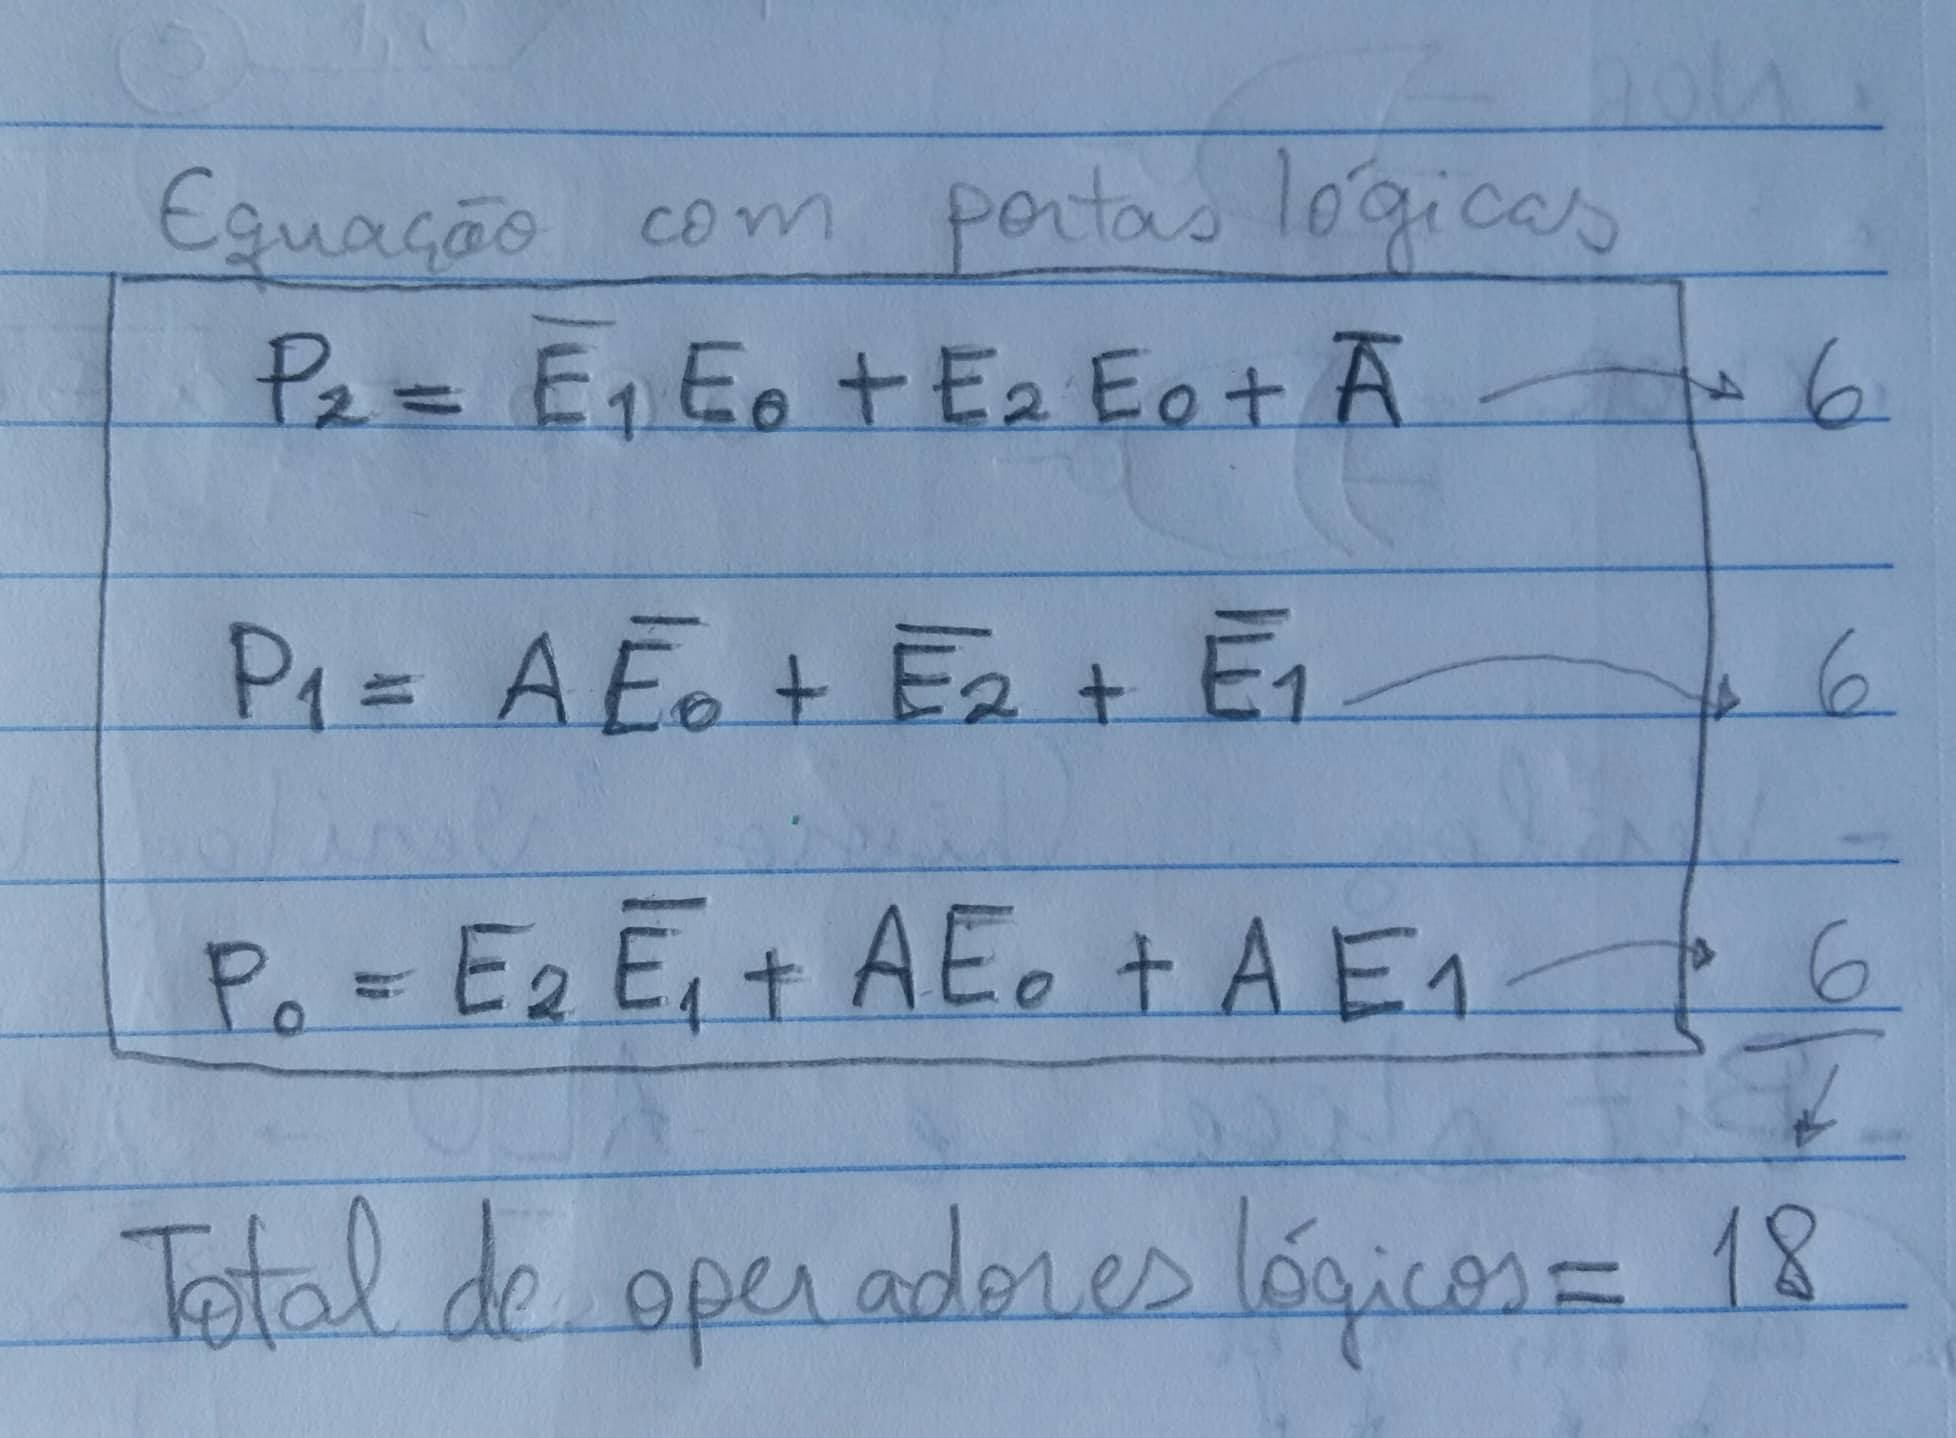 Equação com portas lógicas
P₂ = E̅₁ E₀ + E₂ E₀ + A̅ → 6
P₁ = A E̅₀ + E̅₂ + E̅₁ → 6
P₀ = E₂ E̅₁ + A E̅₀ + A E1 → 6
Total de operadores lógicos = 18